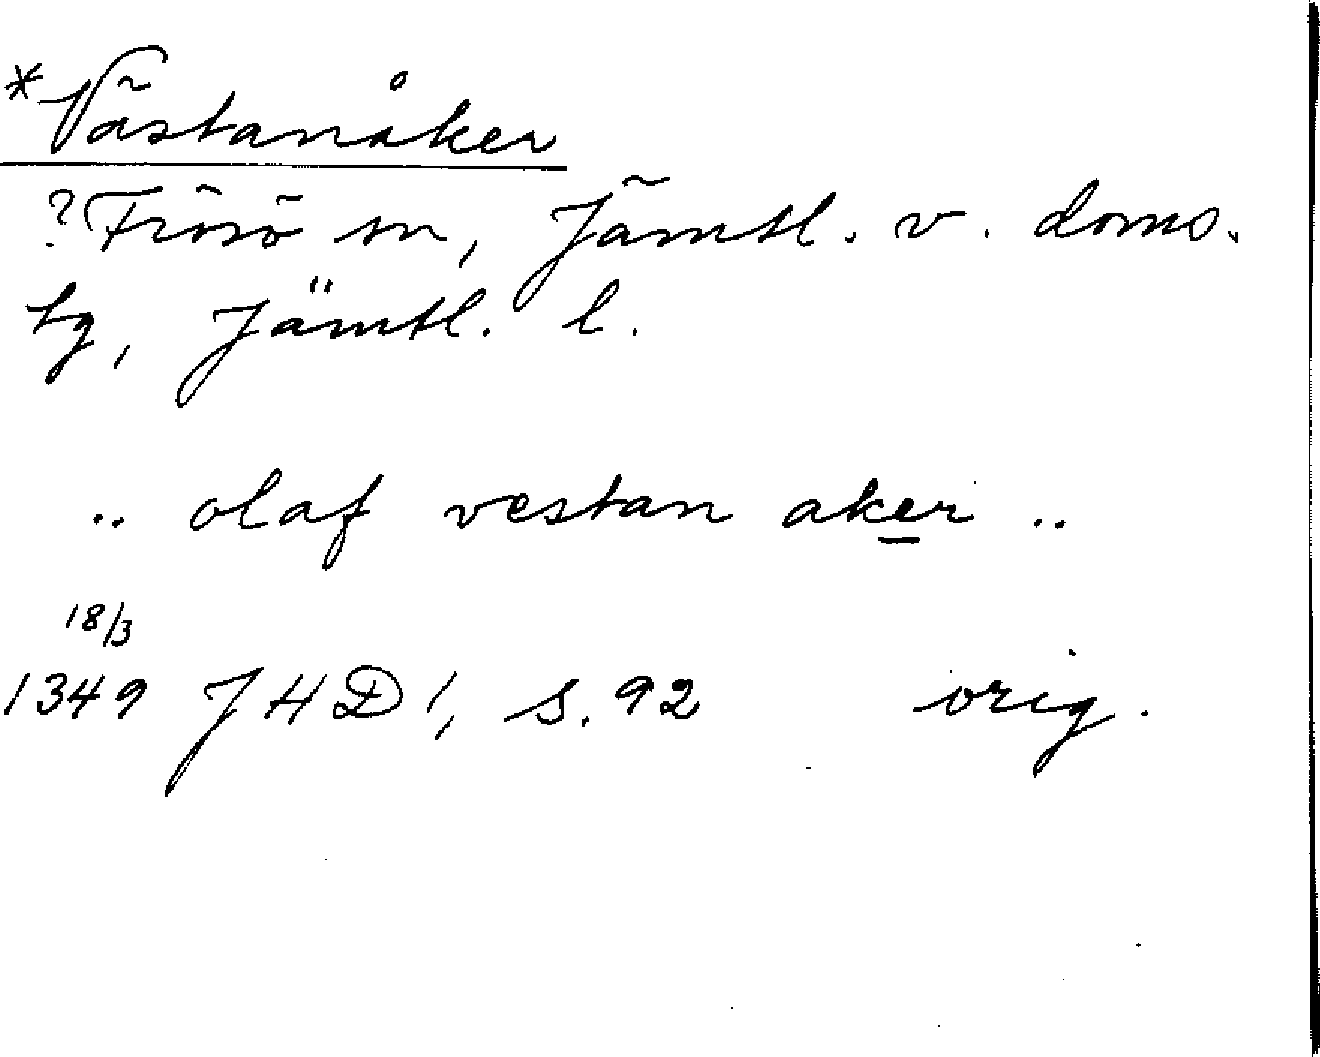 *Västanåker
?Frösö sn, Jämtl. v. doms.
tg, Jämtl. l.
.. olaf vestan aker ..
18/3
1349 JHD 1, s. 92 orig.